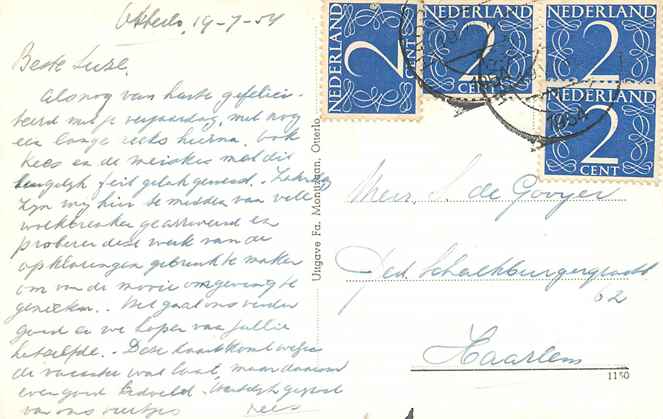 Otterlo, 19-7-54
Beste Luze,
Alsnog van harte gefelici-
teerd met je verjaardag, met nog
een lange reeks hierna. Ook
Kees en de meisjes met dit
heugelijk feit geluk gewenst.
zijn wij hier te midden van vele
wolkbreuken gearriveerd en
proberen deze week van de
opklaringen gebruik te maken
om van de mooie omgeving te
genieten. Het gaat ons verder
goed en we hopen van jullie
hetzelfde. Deze kaart komt
de vacantie wat laat, maar daarom
even goed bedoeld. Hartelijk gegroet
van ons
Kees
NEDERLAND
2
CENT
NEDERLAND
2
CENT
NEDERLAND
2
NEDERLAND
2
CENT
1954
Uitgave Fa. Montizaan, Otterlo
de Gooyer
Ged. Schalkburgergracht
62
Haarlem
1150